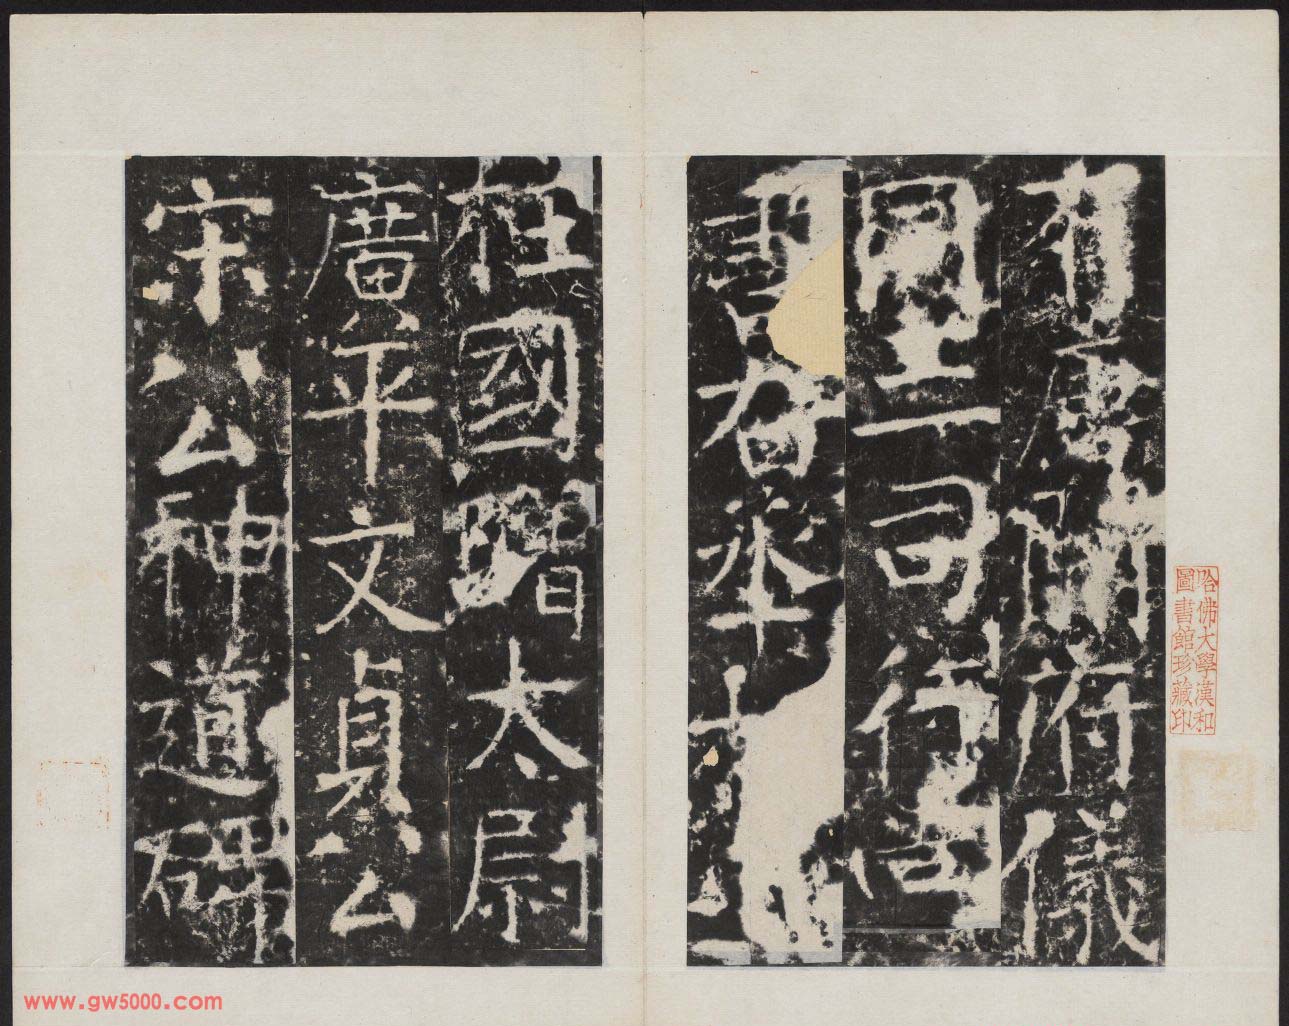 有唐開府儀
同三司行尚
書右丞相上
柱國贈太尉
廣平文貞公
宋公神道碑
哈佛大學漢和
圖書館珍藏印
www.gw5000.com